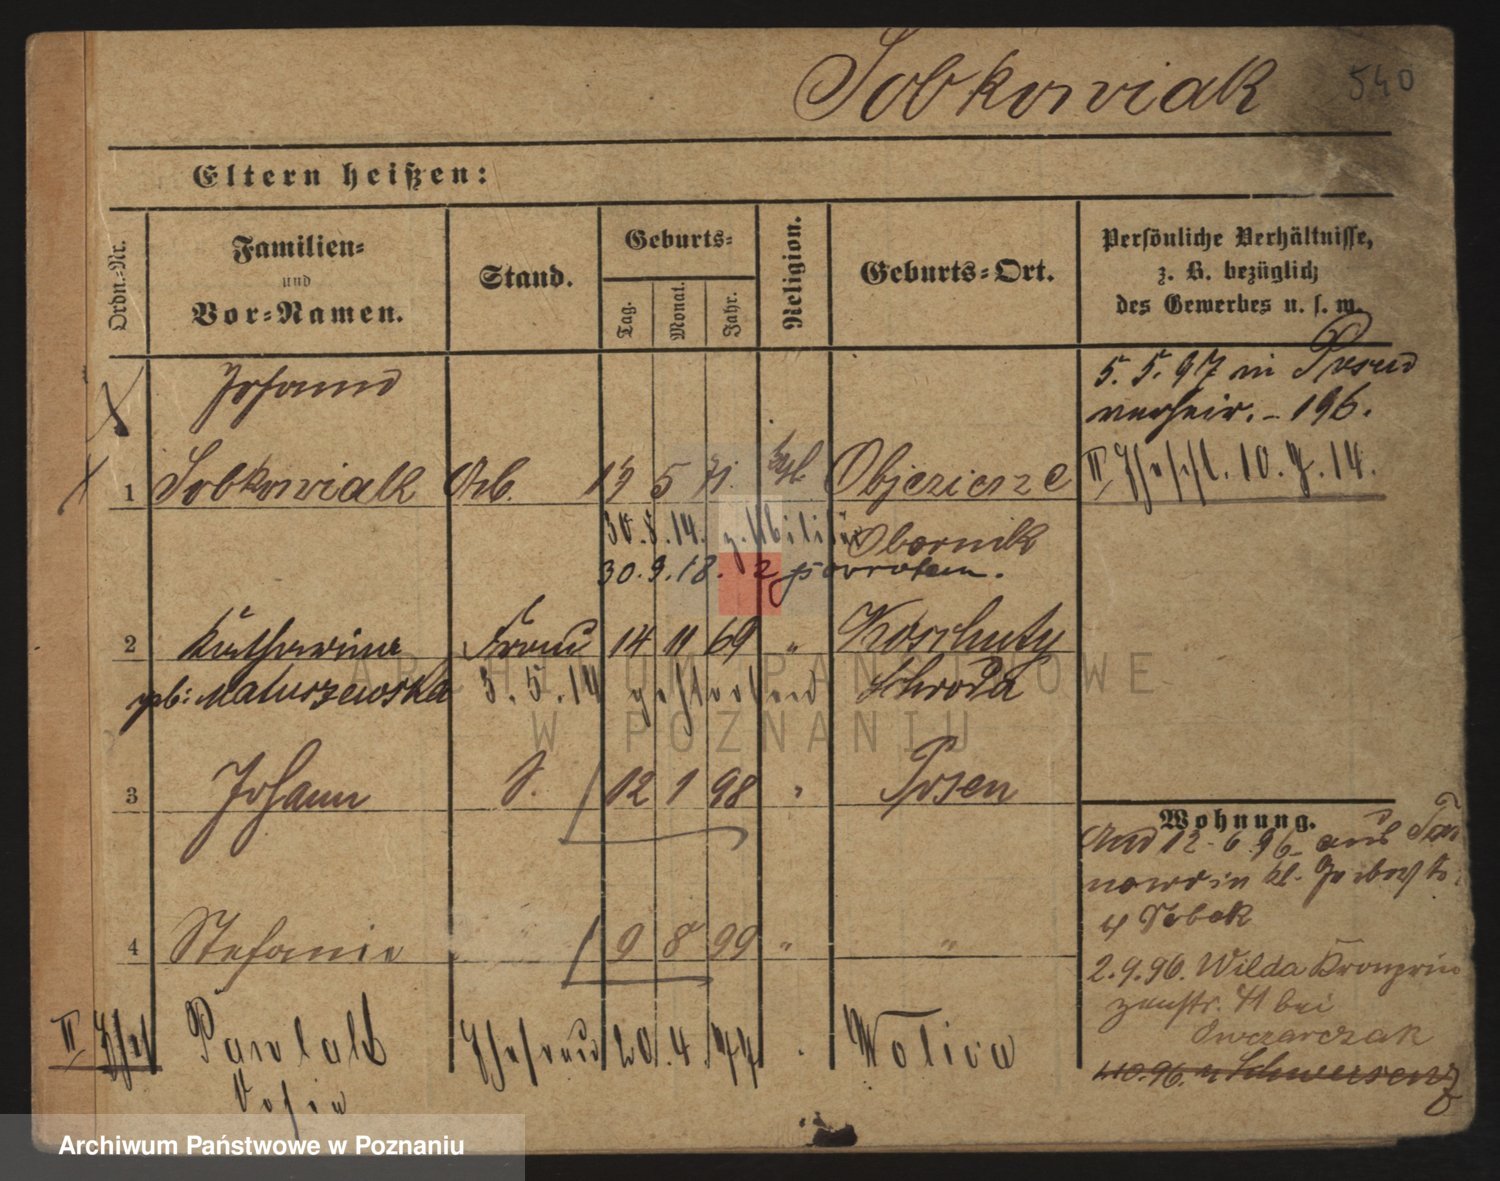 Sobkowiak 540
Eltern heißen:
Ordn.-Nr. Familien- und Vor-Namen. Stand. Geburts- Tag. Monat. Jahr. Religion. Geburts-Ort. Persönliche Verhältnisse, z. B. bezüglich des Gewerbes u. s. w.
Johann 5. 5. 97 in Posen
verheir. - 196.
1 Sobkowiak Arb. 15 5 71. kath. Objezierze II Ehe 10. 7. 14.
30. 8. 14. z. Militär Obornik
30. 9. 18. z powrotem.
2 Katharina Frau 14 11 69 " Koschuty
geb: Maturzewska 3. 5. 14 gestorben Schroda
3 Johann S. 12 1 98 " Posen
Wohnung.
And 12. 6. 96. aus
4 Sobek
4 Stefanie 9 8 99 " "
2. 9. 96. Wilda Kronprin
zenstr. 41 bei
Owczarczak
II Ehe Pawlak Ehefrau 20. 4. 77 Wolica
4.10.96. n Schwersenz
Sofie
ARCHIWUM PAŃSTWOWE
W POZNANIU
Archiwum Państwowe w Poznaniu